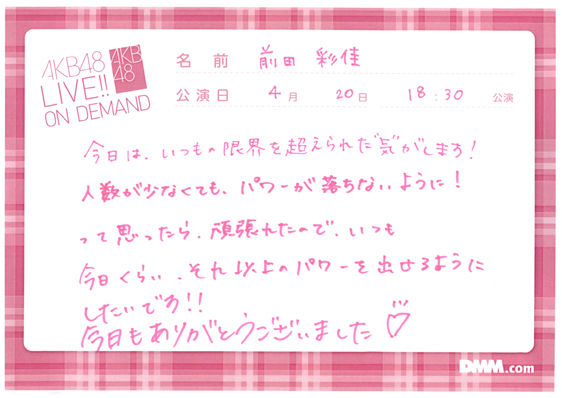 AKB48
LIVE!!
ON DEMAND
AKB
48
名前 前田 彩佳
公演日 4月 20日 18:30 公演
今日は、いつもの限界を超えられた気がします!
人数が少なくても、パワーが落ちないように!
って思ったら、頑張れたので、いつも
今日くらい、それ以上のパワーを出せるように
したいです!!
今日もありがとうございました♡
DMM.com